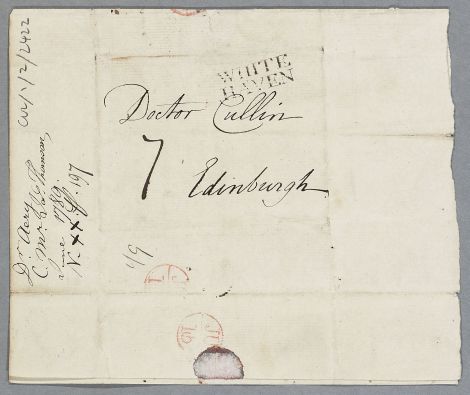 WHITE
HAVEN
Doctor Cullin
7
Edinburgh
1/9
CUL/1/2/2422
Dr Aery
C. Mr
June 1789
N. XX. p. 197